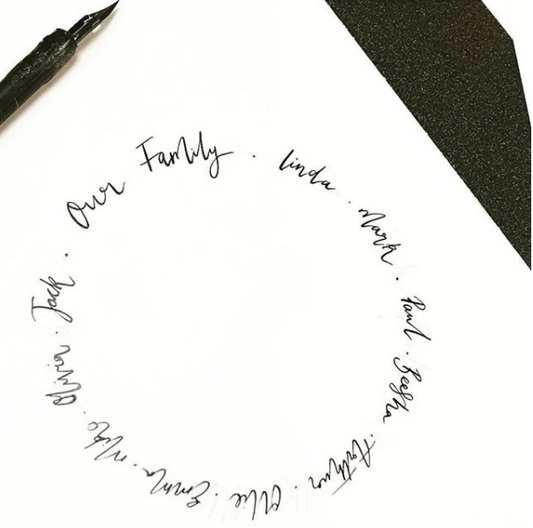 Our Family . Linda . Mark . Paul . Beesha . Arthur . Ollie . Emma . Mike . Olivia . Jack .